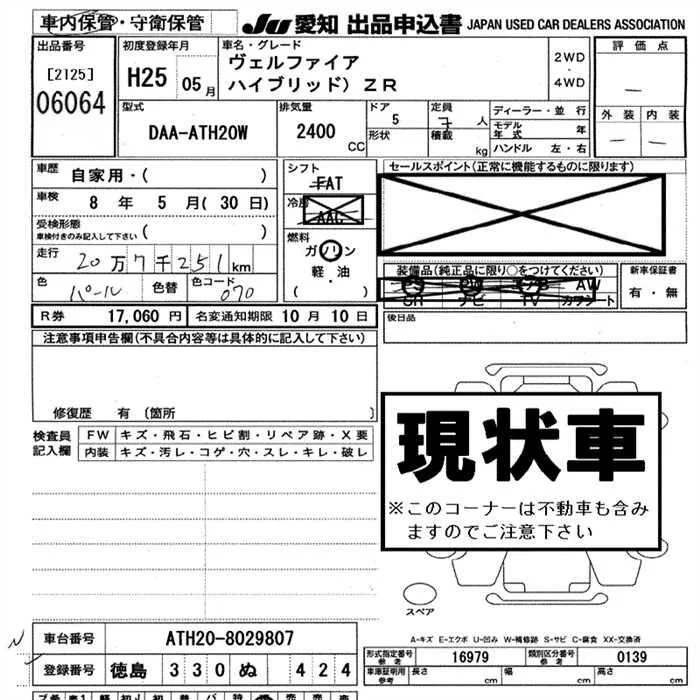 車内保管・守衛保管 JU 愛知 出品申込書 JAPAN USED CAR DEALERS ASSOCIATION
出品番号 [2125] 06064
初度登録年月 H25 05月
車名・グレード ヴェルファイア ハイブリッド) ZR
2WD ・ 4WD
評価点 —
外装 — 内装 —
型式 DAA-ATH20W
排気量 2400 CC
ドア 5 形状
定員 7 人 積載 kg
ディーラー・並行
モデル年式 年
ハンドル 左・右
車歴 自家用・( )
車検 8年 5月(30日)
受検形態 車検付きのみ記入して下さい ( )
走行 20万7千251km
色 パール 色替 色コード 070
シフト FAT
冷房 AAC
燃料 ガソリン 軽・油 ( )
セールスポイント(正常に機能するものに限ります)
装備品(純正品に限り○をつけてください)
PS PW AW
SR ナビ TV カワシート
新車保証書 有・無
R券 17,060円 名変通知期限 10月10日
後日品
注意事項申告欄(不具合内容等は具体的に記入して下さい)
修復歴 有 〔箇所 〕
検査員記入欄 FW キズ・飛石・ヒビ割・リペア跡・X要
内装 キズ・汚レ・コゲ・穴・スレ・キレ・破レ
現状車
※このコーナーは不動車も含み
ますのでご注意下さい
スペア
A-キズ E-エクボ U-凹み W-補修跡 S-サビ C-腐食 XX-交換済
N
車台番号 ATH20-8029807
登録番号 徳島 330 ぬ 424
形式指定番号 参考 16979 類別区分番号 参考 0139
車庫証明用 参考 長さ cm 幅 cm 高さ cm